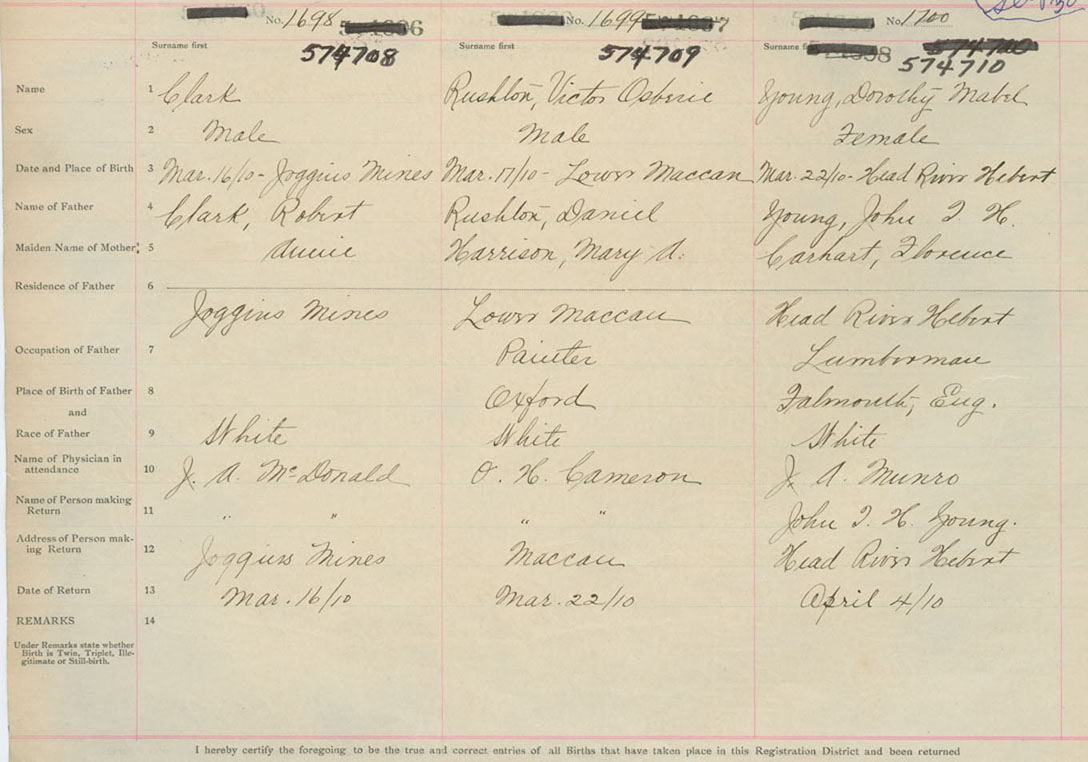 No. 1698 No. 1699 No. 1700
Surname first Surname first Surname first
574708 574709 574710
Name 1 Clark Rushton, Victor Osberie Young, Dorothy Mabel
Sex 2 Male Male Female
Date and Place of Birth 3 Mar. 16/10 - Joggins Mines Mar. 17/10 - Lower Maccan Mar. 22/10 - Head River Hebert
Name of Father 4 Clark, Robert Rushton, Daniel Young, John I. H.
Maiden Name of Mother 5 Annie Harrison, Mary A. Carhart, Florence
Residence of Father 6
Joggins Mines Lower Maccan Head River Hebert
Occupation of Father 7 Painter Lumberman
Place of Birth of Father 8 Oxford Falmouth, Eng.
and
Race of Father 9 White White White
Name of Physician in
attendance 10 J. A. McDonald O. H. Cameron J. A. Munro
Name of Person making
Return 11 " " " " John I. H. Young.
Address of Person mak-
ing Return 12 Joggins Mines Maccan Head River Hebert
Date of Return 13 Mar. 16/10 Mar. 22/10 April 4/10
REMARKS 14
Under Remarks state whether
Birth is Twin, Triplet, Ille-
gitimate or Still-birth.
I hereby certify the foregoing to be the true and correct entries of all Births that have taken place in this Registration District and been returned